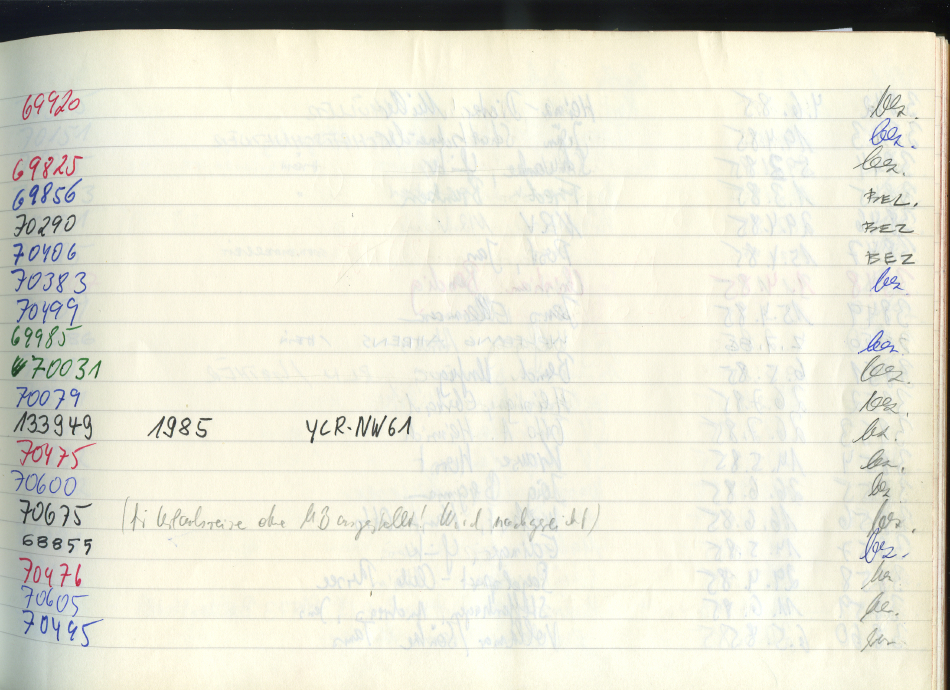 69920 bez.
bez.
69825 bez.
69856 BEZ.
70290 BEZ
70406 BEZ
70383 bez
70499
69985 bez
70031 bez.
70079 bez.
133949 1985 YCR-NW61 bez.
70475 bez.
70600 bez
70675 ohne MB ausgestellt! Wird nachgereicht) bez.
68855 bez.
70476 bez
70605 bez.
70495 bez.